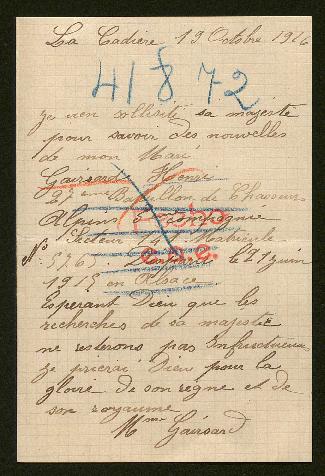 La Cadière 19 Octobre 1916
41872
je vien sollisité sa majesté
pour savoir des nouvelles
de mon Mari
Gairsard Henri
67 eme Bataillon de Chasseurs
Alpins 5e Compagnie
Secteur 141 Matricule
No 5365 le 21 juin
1915 en Alsace
Esperant Dieu que les
recherches de sa majestée
ne resterons pas Infructueuse
je prierai Dieu pour la
gloire de son règne et de
son royaume
Mme Gairsard